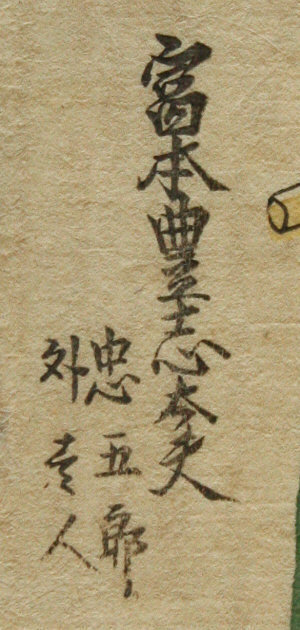 富本豊志太夫
忠五郎
外壱人